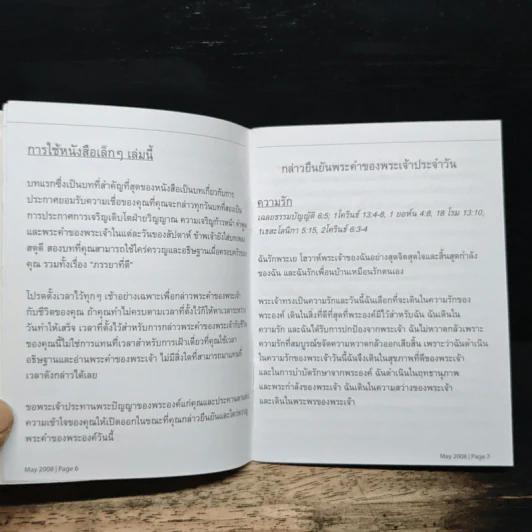 การใช้หนังสือเล็กๆ เล่มนี้
บทแรกซึ่งเป็นบทที่สำคัญที่สุดของหนังสือเป็นบทเกี่ยวกับการ
ประกาศยอมรับความเชื่อของคุณที่คุณจะกล่าวทุกวันบทที่สองเป็น
การประกาศการเจริญเติบโตฝ่ายวิญญาณ ความเจริญก้าวหน้า
และพระคำของพระเจ้าในแต่ละวันของสัปดาห์ ข้าพเจ้ายังใส่บทเพลง
สดุดี สองบทที่คุณสามารถใช้ใคร่ครวญและอธิษฐานเผื่อครอบครัวของ
คุณ รวมทั้งเรื่อง "ภรรยาที่ดี"
โปรดตั้งเวลาไว้ทุกๆ เช้าอย่างเฉพาะเพื่อกล่าวพระคำของพระเจ้า
กับชีวิตของคุณ ถ้าคุณทำไม่ครบตามเวลาที่ตั้งไว้ก็ให้หาเวลาระหว่าง
วันทำให้เสร็จ เวลาที่ตั้งไว้สำหรับการกล่าวพระคำของพระเจ้ากับชีวิต
ของคุณนี้ไม่ใช่การแทนที่เวลาสำหรับการเฝ้าเดี่ยวที่คุณใช้เวลา
อธิษฐานและอ่านพระคำของพระเจ้า ไม่มีสิ่งใดที่สามารถมาแทนที่
เวลาดังกล่าวได้เลย
ขอพระเจ้าประทานพระปัญญาของพระองค์แก่คุณและประทาน
ความเข้าใจของคุณให้เปิดออกในขณะที่คุณกล่าวยืนยันและใคร่ครวญ
พระคำของพระองค์วันนี้
May 2008 | Page 6
กล่าวยืนยันพระคำของพระเจ้าประจำวัน
ความรัก
เฉลยธรรมบัญญัติ 6:5; 1โครินธ์ 13:4-8, 1 ยอห์น 4:8, 18 โรม 13:10,
1เธสะโลนิกา 5:15, 2โครินธ์ 6:3-4
ฉันรักพระเย โฮวาห์พระเจ้าของฉันอย่างสุดจิตสุดใจและสิ้นสุดกำลัง
ของฉัน และฉันรักเพื่อนบ้านเหมือนรักตนเอง
พระเจ้าทรงเป็นความรักและวันนี้ฉันเลือกที่จะเดินในความรักของ
พระองค์ เดินในสิ่งที่ดีที่สุดที่พระองค์มีไว้สำหรับฉัน ฉันเดินใน
ความรัก และฉันได้รับการปกป้องจากพระเจ้า ฉันไม่หวาดกลัวเพราะ
ความรักที่สมบูรณ์ขจัดความหวาดกลัวออกเสียสิ้น เพราะว่าฉันดำเนิน
ในความรักของพระเจ้าวันนี้ฉันจึงเดินในสุขภาพที่ดีของพระเจ้า
และในการบำบัดรักษาจากพระองค์ ฉันดำเนินในฤทธานุภาพ
และพระกำลังของพระเจ้า ฉันเดินในความสว่างของพระเจ้า
และเดินในพระพรของพระเจ้า
May 2008 | Page 7